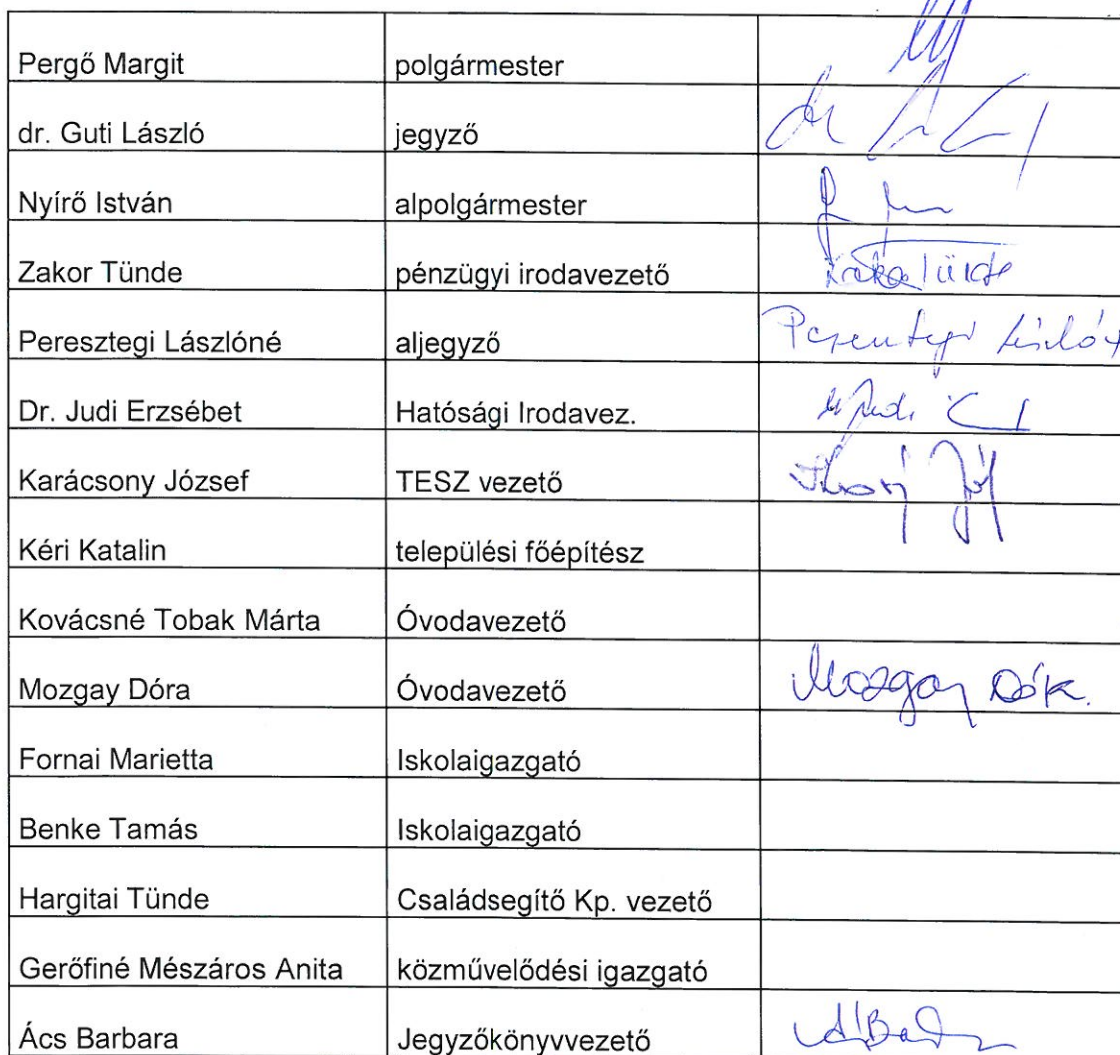 Pergő Margit polgármester
dr. Guti László jegyző
Nyírő István alpolgármester
Zakor Tünde pénzügyi irodavezető
Peresztegi Lászlóné aljegyző
Dr. Judi Erzsébet Hatósági Irodavez.
Karácsony József TESZ vezető
Kéri Katalin települési főépítész
Kovácsné Tobak Márta Óvodavezető
Mozgay Dóra Óvodavezető Mozgay
Fornai Marietta Iskolaigazgató
Benke Tamás Iskolaigazgató
Hargitai Tünde Családsegítő Kp. vezető
Gerőfiné Mészáros Anita közművelődési igazgató
Ács Barbara Jegyzőkönyvvezető